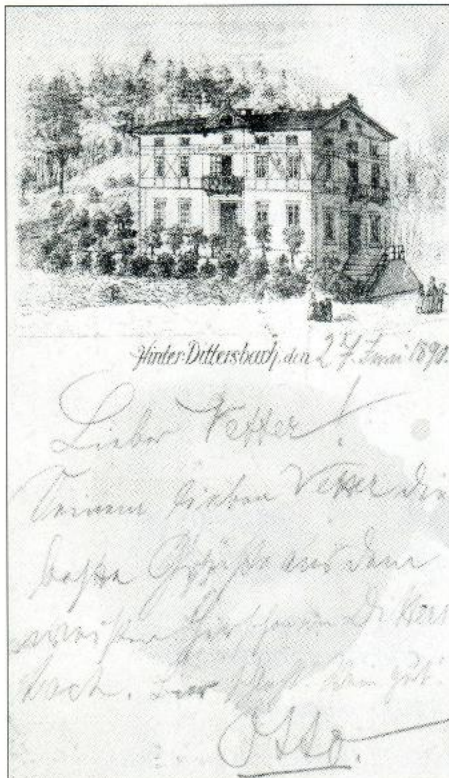 Hinter-Dittersbach, den 27. Juni 1890.
Lieber Vetter!
Seinem lieben Vetter die
beste Grüße aus dem
weißen Hirschen in Ditters
bach.
Otto.